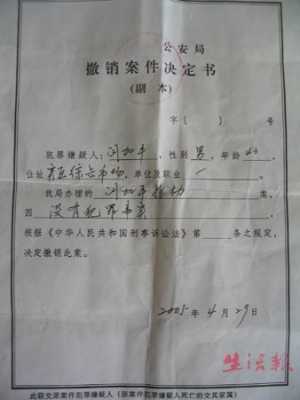 公安局
撤销案件决定书
(副本)
字( )号
犯罪嫌疑人: 平,性别男,年龄
住址 市场,单位及职业
我局办理的 平 案,
因没有犯罪事实
根据《中华人民共和国刑事诉讼法》第 条之规定,
决定撤销此案。
2005年4月29日
生活报
此联交原案件犯罪嫌疑人(原案件犯罪嫌疑人死亡的交其家属)